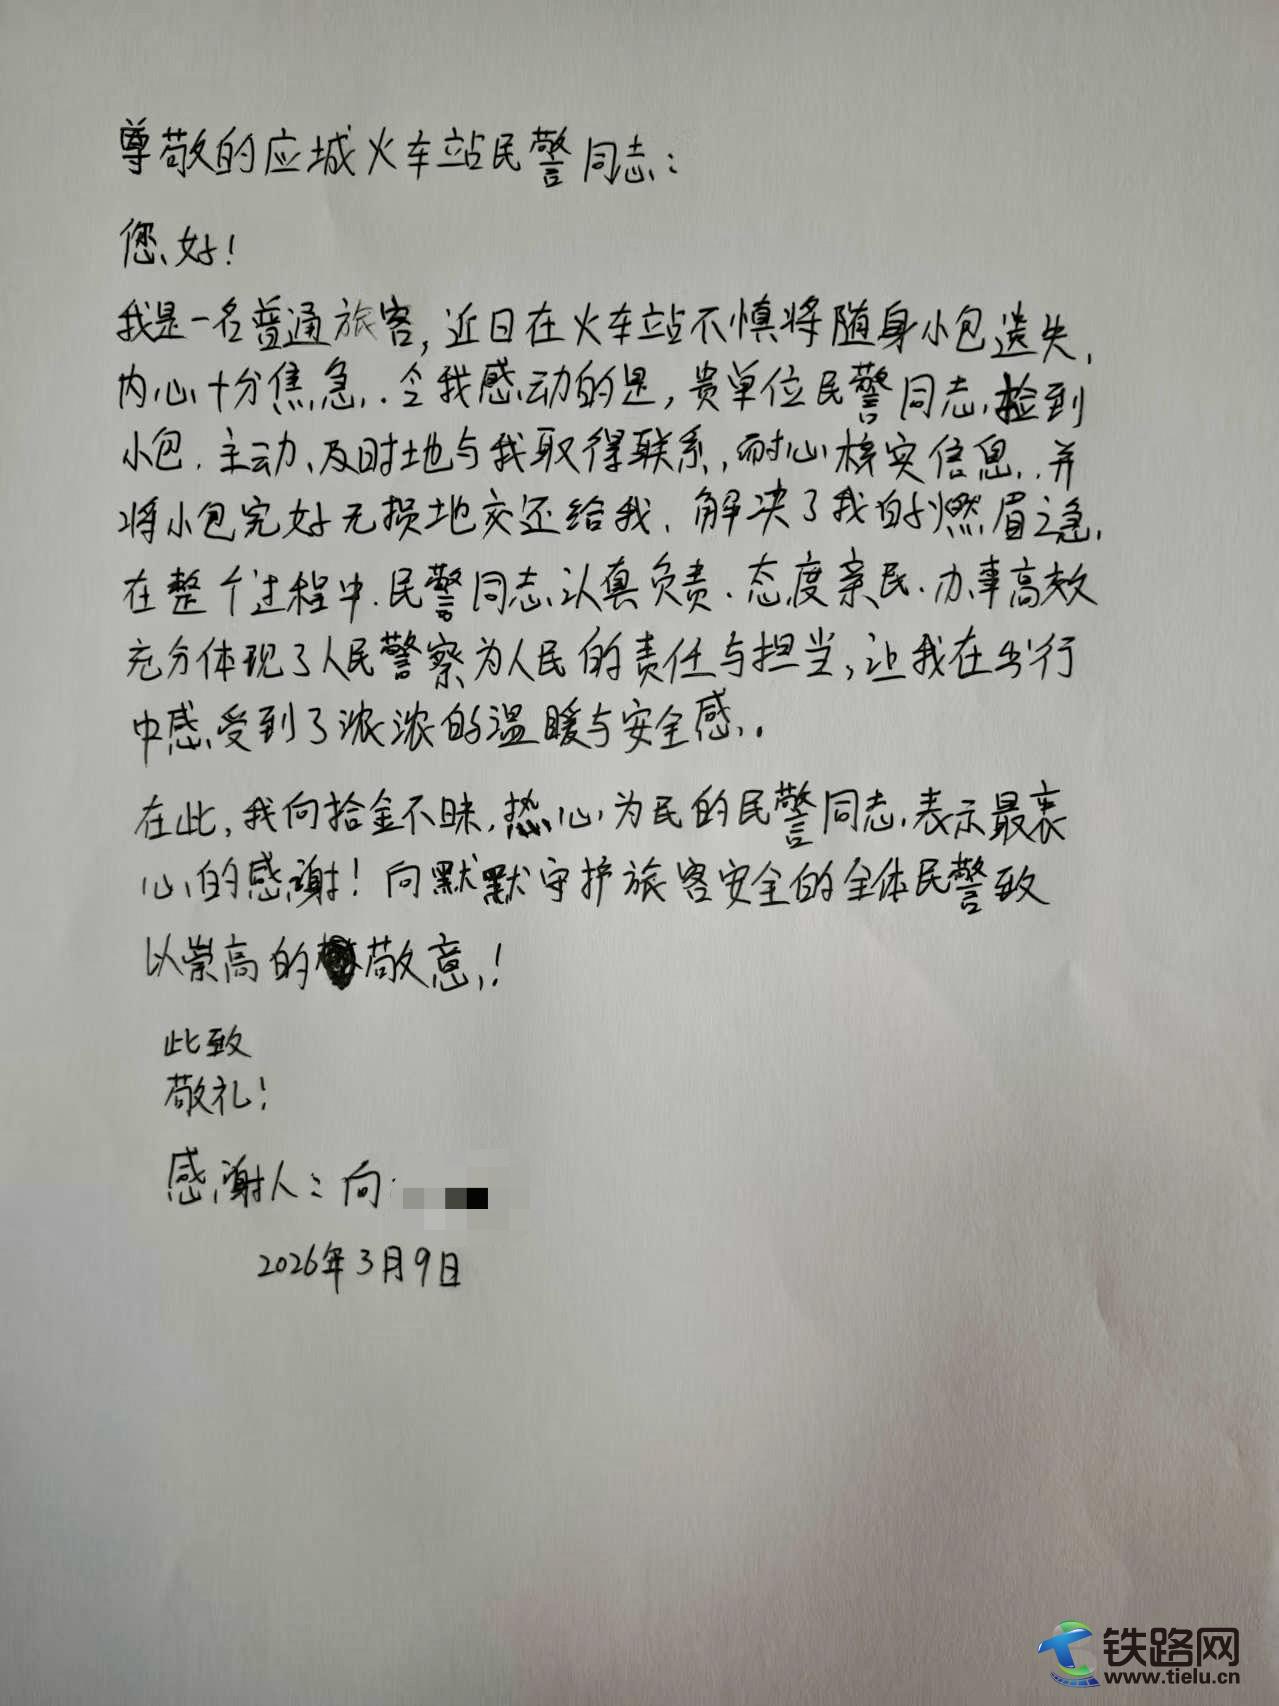 尊敬的应城火车站民警同志：
您好！
我是一名普通旅客，近日在火车站不慎将随身小包遗失，
内心十分焦急．令我感动的是，贵单位民警同志捡到
小包．主动、及时地与我取得联系，耐心核实信息．并
将小包完好无损地交还给我．解决了我的燃眉之急，
在整个过程中．民警同志认真负责．态度亲民．办事高效
充分体现了人民警察为人民的责任与担当，让我在出行
中感受到了浓浓的温暖与安全感．
在此，我向拾金不昧．热心为民的民警同志表示最衷
心的感谢！向默默守护旅客安全的全体民警致
以崇高的敬意！
此致
敬礼！
感谢人：向
2026年3月9日
铁路网
www.tielu.cn